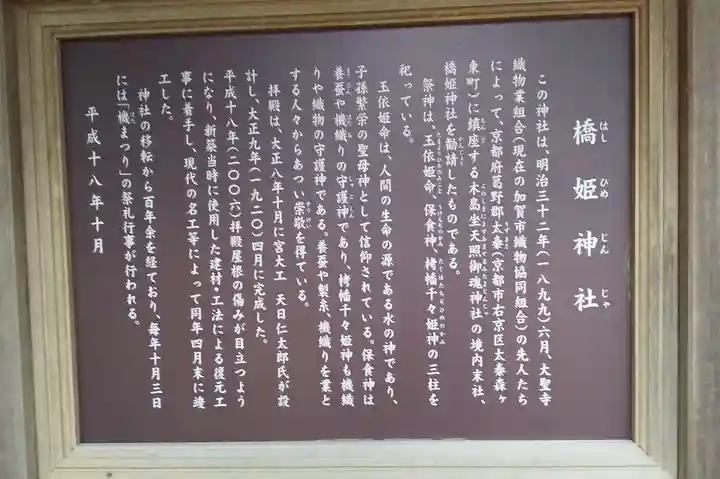 橋姫神社
はしひめじんじゃ
この神社は、明治三十二年(一八九九)六月、大聖寺
織物業組合(現在の加賀市織物協同組合)の先人たち
によって、京都府葛野郡太秦(京都市右京区太秦森ヶ
東町)に鎮座する木島坐天照御魂神社の境内末社、
橋姫神社を勧請したものである。
祭神は、玉依姫命、保食神、栲幡千々姫神の三柱を
祀っている。
玉依姫命は、人間の生命の源である水の神であり、
子孫繁栄の聖母神として信仰されている。保食神は
養蚕や機織りの守護神であり、栲幡千々姫神も機織
りや織物の守護神である。養蚕や製糸、機織りを業と
する人々からあつい崇敬を得ている。
拝殿は、大正八年十月に宮大工 天日仁太郎氏が設
計し、大正九年(一九二〇)四月に完成した。
平成十八年(二〇〇六)拝殿屋根の傷みが目立つよう
になり、新築当時に使用した建材・工法による復元工
事に着手し、現代の名工等によって同年四月末に竣
工した。
神社の移転から百年余を経ており、毎年十月三日
には「機まつり」の祭礼行事が行われる。
平成十八年十月